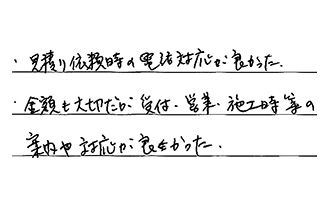 ・見積り依頼時の電話対応が良かった.
・金額も大切だが受付・営業・施工時等の
案内や対応が良かった.